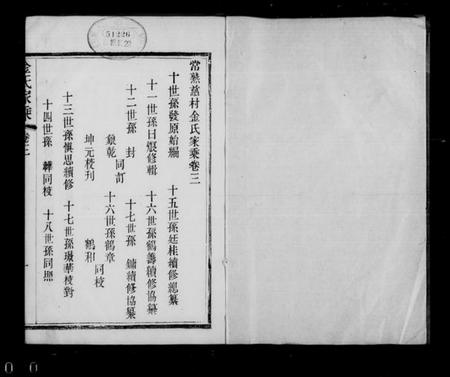 常熟慈村金氏家乘卷三
十世孫發原始編 十五世孫廷桂續修總纂
十一世孫日焻修輯 十六世孫鶴善續修協纂
十二世孫 封 十七世孫 鏞續修協纂
銀乾 同訂 十六世孫鶴章
坤元校刊 鶴和 同校
十三世孫懼思續修 十七世孫璣華校對
十四世孫 韡同校 十八世孫同熙
金氏家乘 卷三
一
51226
0 0